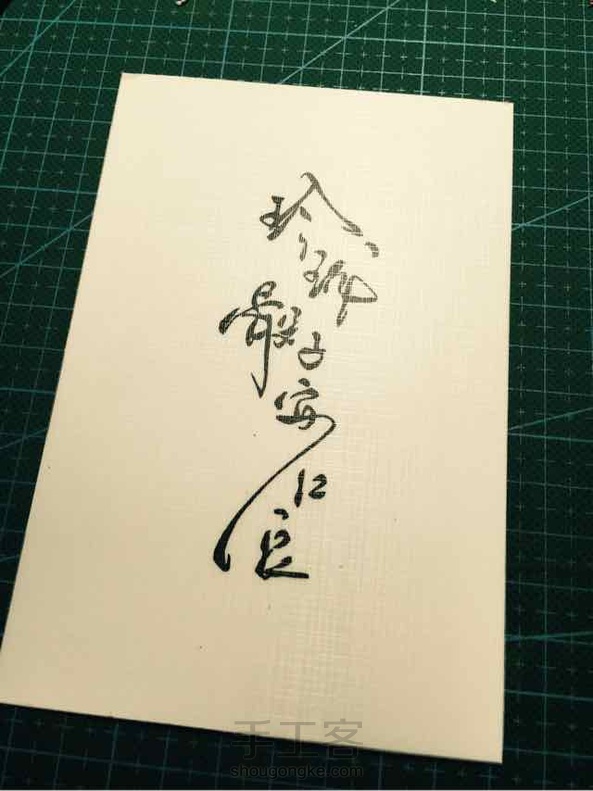 玲珑骰子安红豆
手工客
shougongke.com